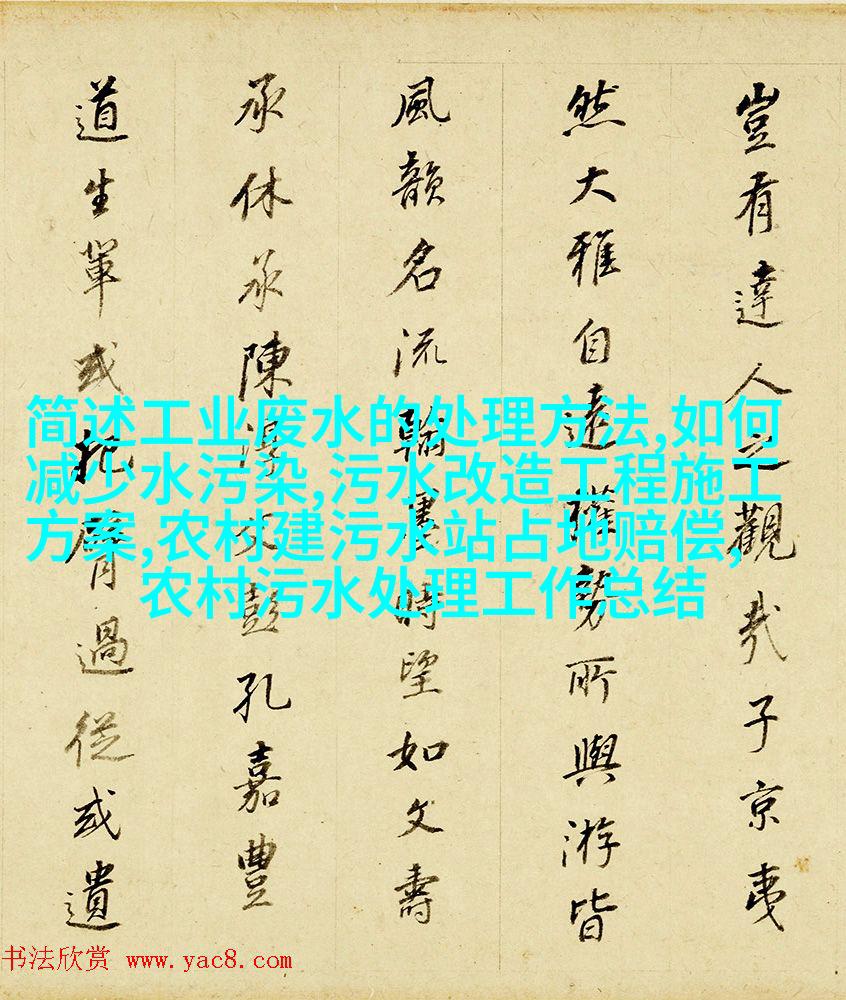 豈有達人之觀哉子京夷
然大雅自遠權勢所與游皆
風韻名流翰墨時望如文壽
承休承陳淳文彭孔嘉豐
道生輩或把臂過從或遺
简述工业废水的处理方法,如何
减少水污染,污水改造工程施工
方案,农村建污水站占地赔偿,
农村污水处理工作总结
书法欣赏 www.yac8.com